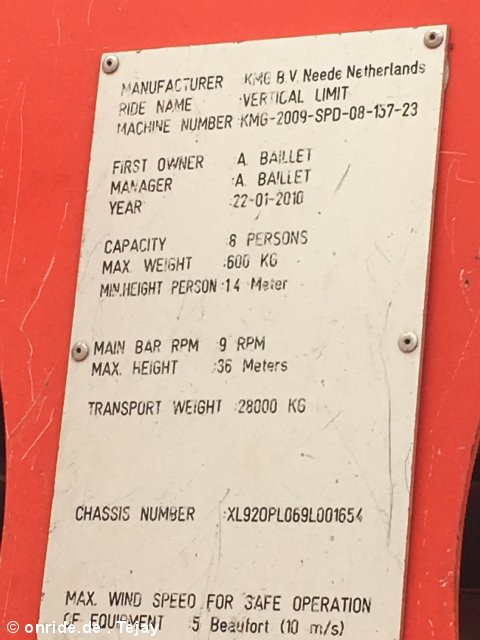 MANUFACTURER :KMG B.V. Neede Netherlands
RIDE NAME :VERTICAL LIMIT
MACHINE NUMBER :KMG-2009-SPD-08-137-23
FIRST OWNER :A. BAILLET
MANAGER :A. BAILLET
YEAR :22-01-2010
CAPACITY :8 PERSONS
MAX. WEIGHT :600 KG
MIN.HEIGHT PERSON :1.4 Meter
MAIN BAR RPM :9 RPM
MAX. HEIGHT :36 Meters
TRANSPORT WEIGHT :28000 KG
CHASSIS NUMBER :XL920PL069L001654
MAX. WIND SPEED FOR SAFE OPERATION
OF EQUIPMENT :5 Beaufort (10 m/s)
© onride.de : Tejay